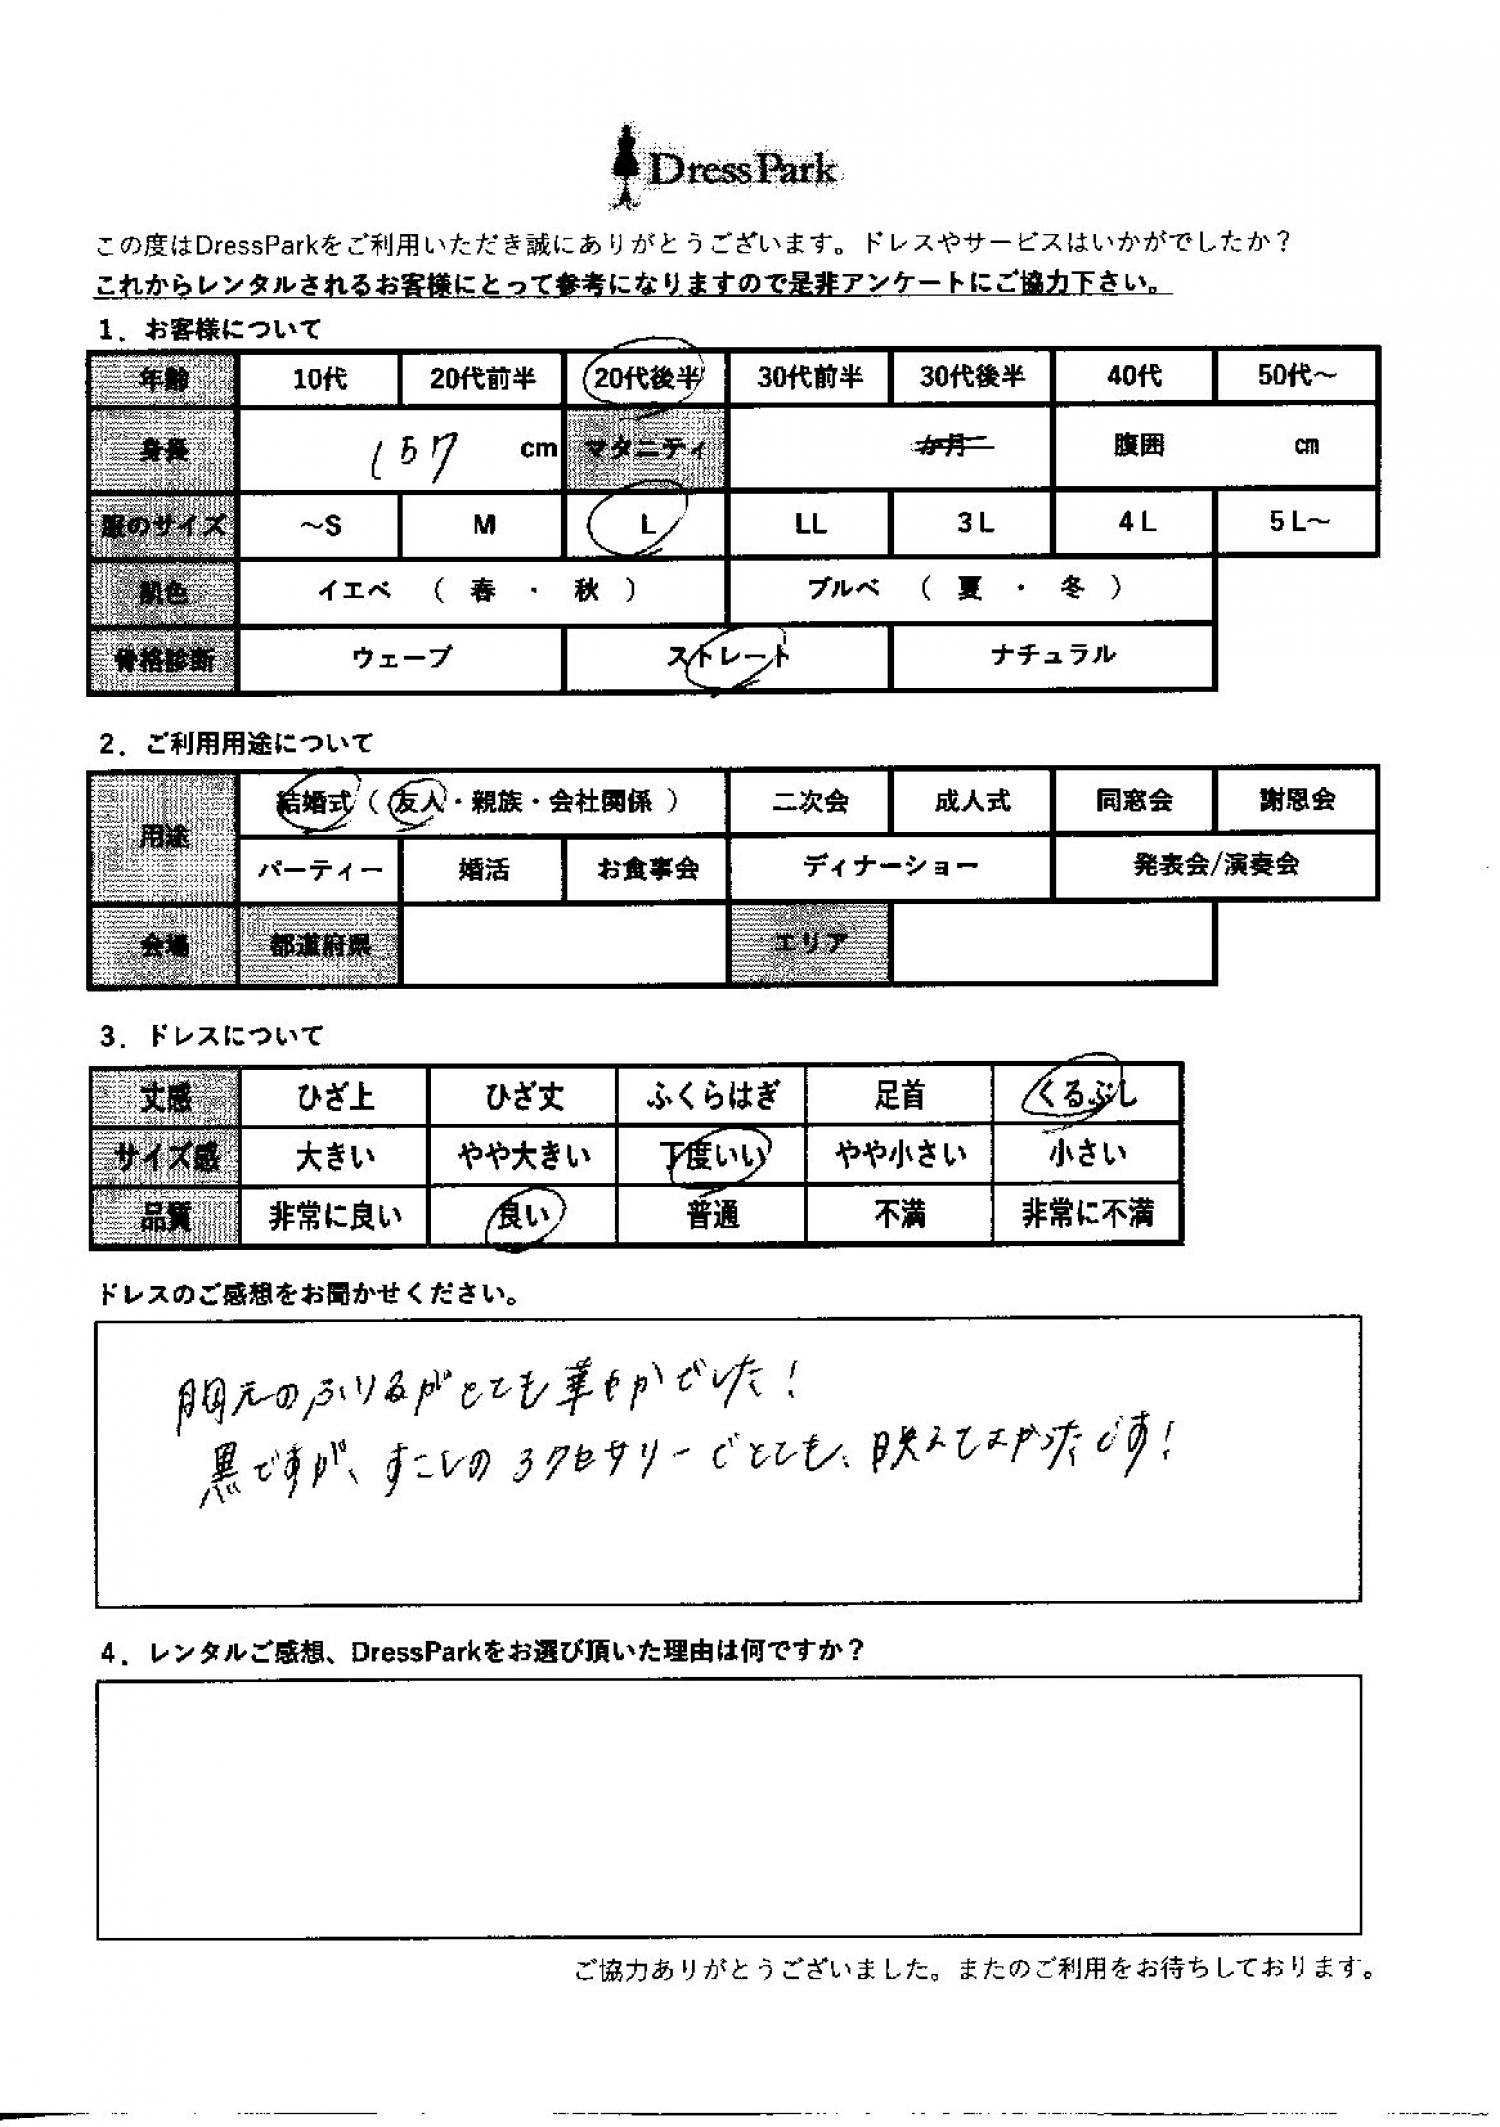 DressPark
この度はDressParkをご利用いただき誠にありがとうございます。ドレスやサービスはいかがでしたか？
これからレンタルされるお客様にとって参考になりますので是非アンケートにご協力下さい。
1．お客様について
年齢 10代 20代前半 20代後半 30代前半 30代後半 40代 50代～
身長 157 cm マタニティ か月 腹囲 cm
服のサイズ ～S M L LL 3L 4L 5L～
肌色 イエベ （ 春 ・ 秋 ） ブルベ （ 夏 ・ 冬 ）
骨格診断 ウェーブ ストレート ナチュラル
2．ご利用用途について
用途 結婚式（友人・親族・会社関係） 二次会 成人式 同窓会 謝恩会
パーティー 婚活 お食事会 ディナーショー 発表会/演奏会
会場 都道府県 エリア
3．ドレスについて
丈感 ひざ上 ひざ丈 ふくらはぎ 足首 くるぶし
サイズ感 大きい やや大きい 丁度いい やや小さい 小さい
品質 非常に良い 良い 普通 不満 非常に不満
ドレスのご感想をお聞かせください。
胸元のふりるがとても華やかでした！
黒ですが、すこしのアクセサリーでとても、映えてよかったです！
4．レンタルご感想、DressParkをお選び頂いた理由は何ですか？
ご協力ありがとうございました。またのご利用をお待ちしております。